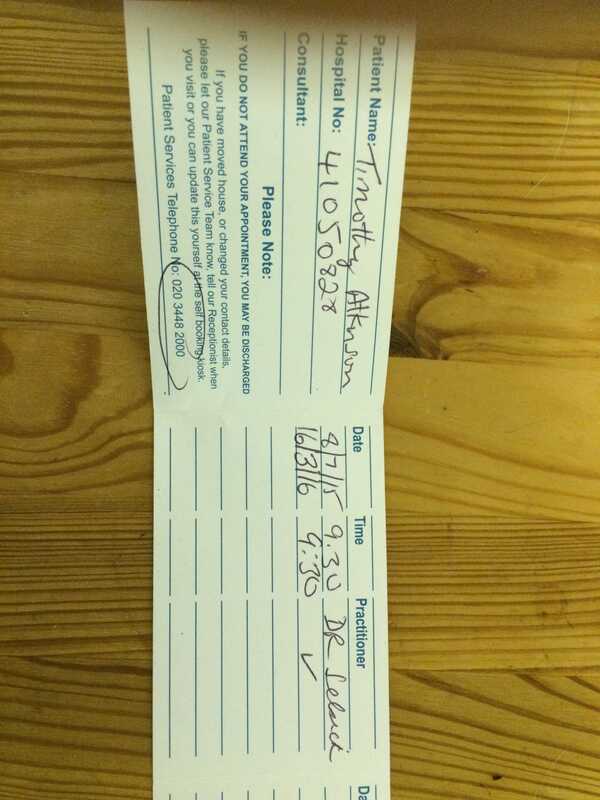 Patient Name: Timothy Atkinson
Hospital No: 41050828
Consultant:
Please Note:
IF YOU DO NOT ATTEND YOUR APPOINTMENT, YOU MAY BE DISCHARGED
If you have moved house, or changed your contact details,
please let our Patient Service Team know, tell our Receptionist when
you visit or you can update this yourself at the self booking kiosk.
Patient Services Telephone No: 020 3448 2000
Date Time Practitioner
8/7/15 9.30 DR
16/3/16 9:30 ✓
Da